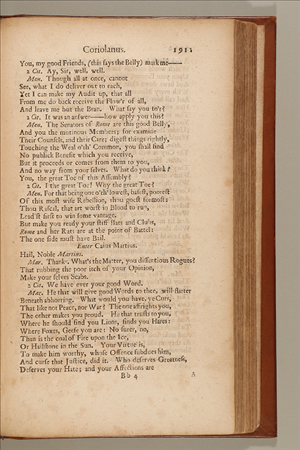 Coriolanus. 1911
You, my good Friends, (this says the Belly) mark me——
2 Cit. Ay, Sir, well, well.
Men. Though all at once, cannot
See, what I do deliver out to each,
Yet I can make my Audit up, that all
From me do back receive the Flow'r of all,
And leave me but the Bran. What say you to't?
2 Cit. It was an answer——how apply you this?
Men. The Senators of Rome are this good Belly,
And you the mutinous Members; for examine
Their Counsels, and their Care; digest things rightly,
Touching the Weal o'th' Common, you shall find
No publick Benefit which you receive,
But it proceeds or comes from them to you,
And no way from your selves. What do you think?
You, the great Toe of this Assembly?
2 Cit. I the great Toe? Why the great Toe?
Men. For that being one o'th' lowest, basest, poorest
Of this most wise Rebellion, thou goest foremost:
Thou Rascal, that art worst in Blood to run,
Lead'st first to win some vantage.
But make you ready your stiff Bats and Clubs,
Rome and her Rats are at the point of Battel:
The one side must have Bail.
Enter Caius Martius.
Hail, Noble Martius.
Mar. Thanks. What's the Matter, you dissentious Rogues!
That rubbing the poor itch of your Opinion,
Make your selves Scabs.
2 Cit. We have ever your good Word.
Mar. He that will give good Words to thee, will flatter
Beneath abhorring. What would have, ye Curs,
That like not Peace, nor War? The one affrights you,
The other makes you proud. He that trusts to you,
Where he should find you Lions, finds you Hares:
Where Foxes, Geese you are: No surer, no,
Than is the coal of Fire upon the Ice,
Or Hailstone in the Sun. Your Virtue is,
To make him worthy, whose Offence subdues him,
And curse that Justice, did it. Who deserves Greatness,
Deserves your Hate; and your Affections are
Bb 4 A